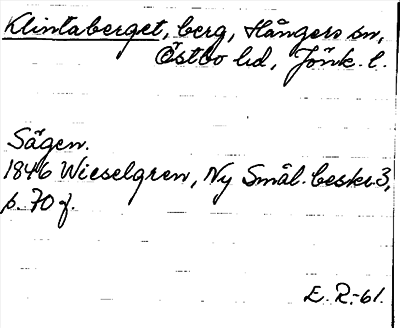 Klintaberget, berg, Hångers sn,
Östbo hd, Jönk. l.
Sägen.
1846 Wieselgren, Ny Smål. beskr. 3,
s. 70 f.
E. R.-61.